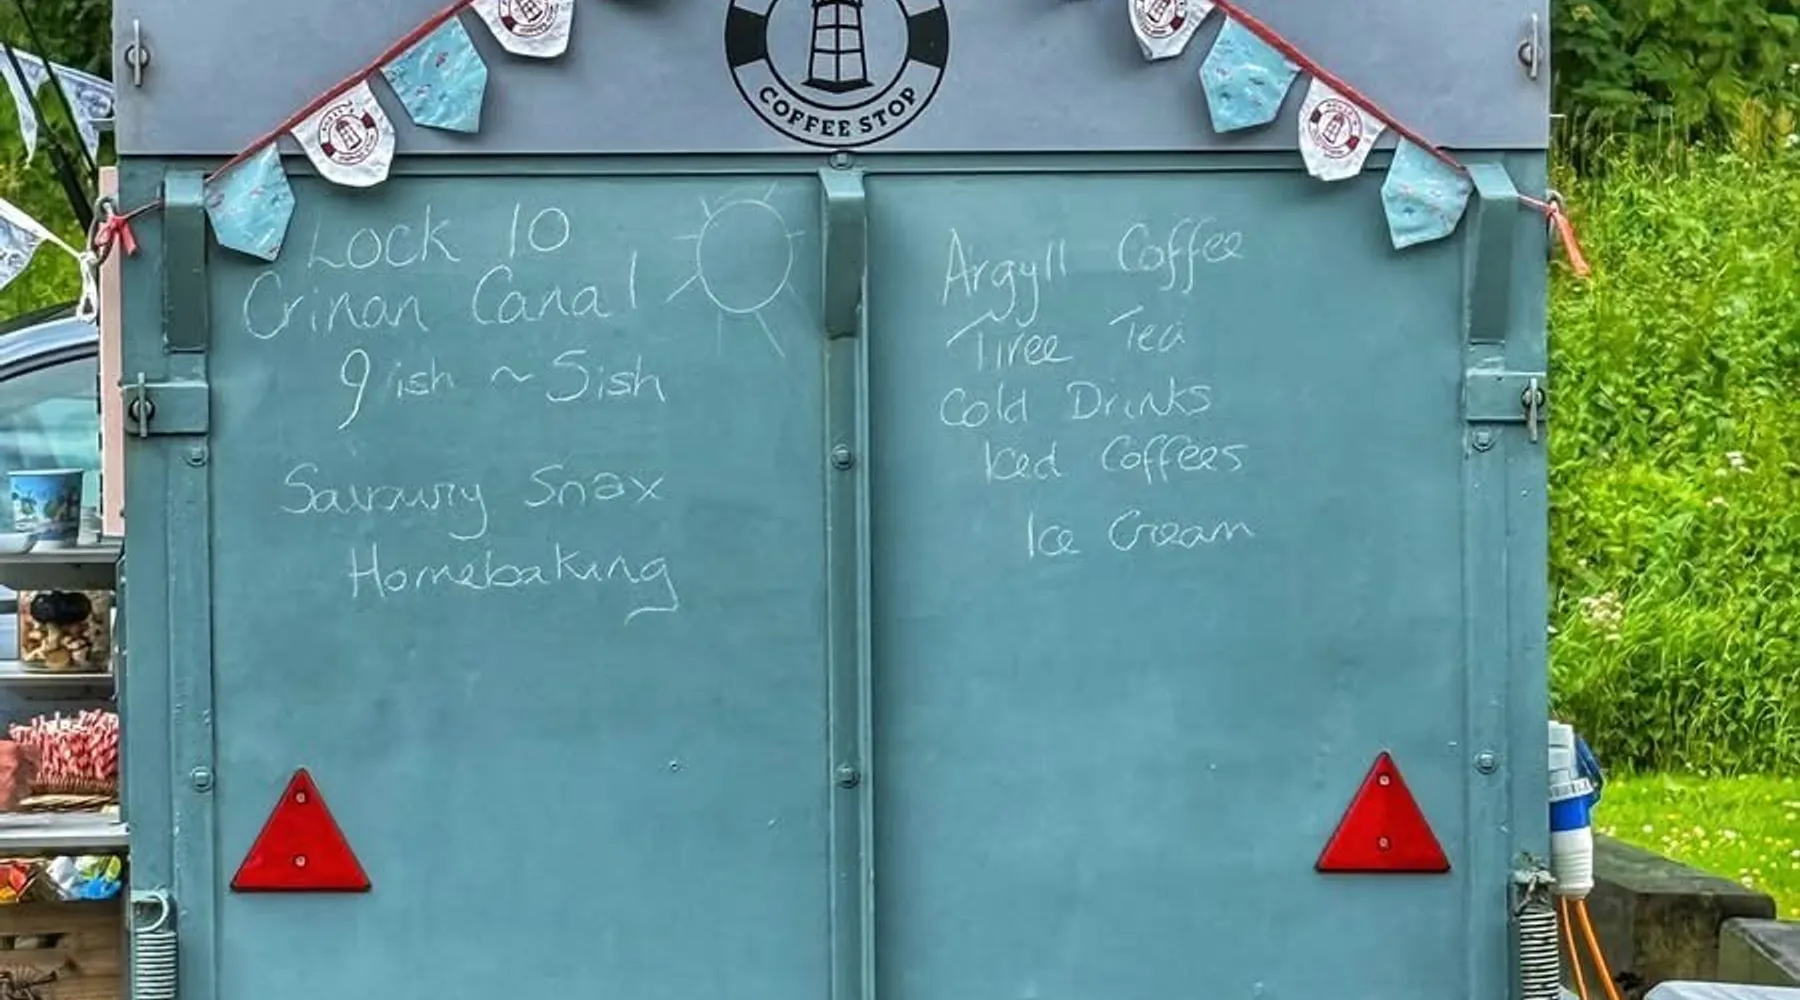 COFFEE STOP
Lock 10
Crinan Canal
9ish ~ 5ish
Savoury Snax
Homebaking
Argyll Coffee
Tiree Tea
Cold Drinks
Iced Coffees
Ice Cream